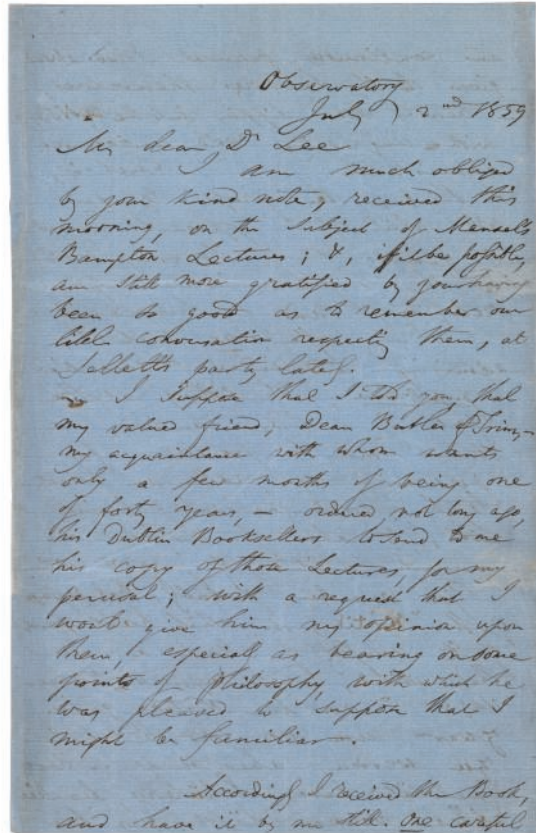 Observatory
July 2nd 1859
My dear Dr Lee
I am much obliged
by your kind note, received this
morning, on the subject of Mansel's
Bampton Lectures; &, if it be possible,
am still more gratified by your having
been so good as to remember our
little conversation respecting them, at
Jellett's party lately.
I suppose that I told you that
my valued friend, Dean Butler of Trim, –
my acquaintance with whom wants
only a few months of being one
of forty years, – ordered not long ago,
his Dublin Booksellers to send to me
his copy of those Lectures, for my
perusal; with a request that I
would give him my opinion upon
them, especially as bearing on some
points of philosophy, with which he
was pleased to suppose that I
might be familiar.
Accordingly I received the Book,
and have it by me still. One careful